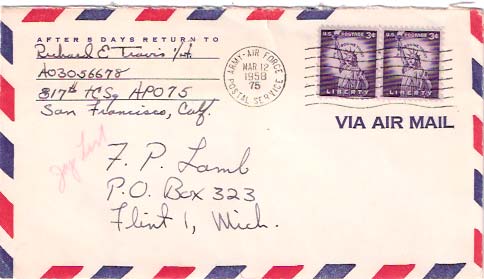 AFTER 5 DAYS RETURN TO
Richard E Travis 1/Lt.
AO3056678
817th TCSq APO75
San Francisco, Calf.
ARMY-AIR FORCE
MAR 12
1958
75
POSTAL SERVICE
U.S. POSTAGE 3¢
LIBERTY
U.S. POSTAGE 3¢
LIBERTY
VIA AIR MAIL
F. P. Lamb
P.O. Box 323
Flint 1, Mich.